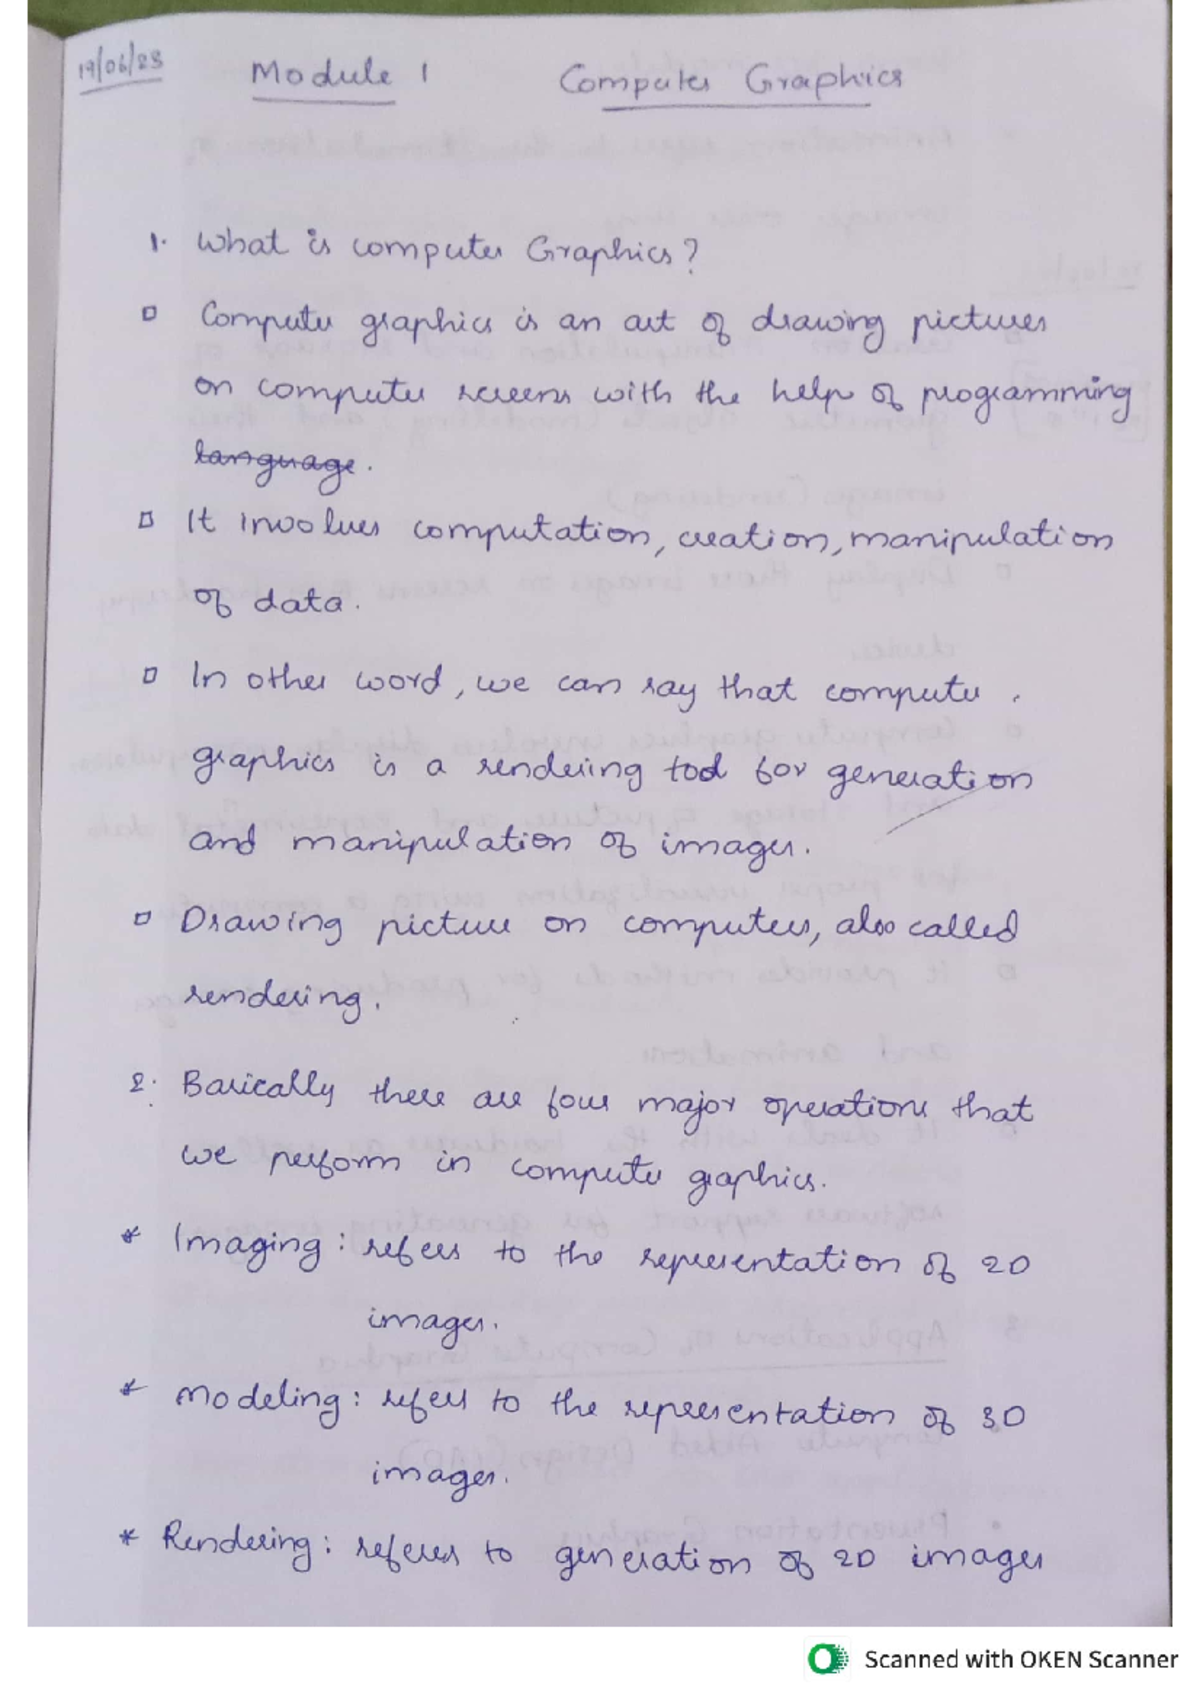 19/06/23 Module 1 Computer Graphics
1. What is computer Graphics?
▫ Computer graphics is an art of drawing pictures
on computer screens with the help of programming
language.
▫ It involves computation, creation, manipulation
of data.
▫ In other word, we can say that computer
graphics is a rendering tool for generation
and manipulation of images.
▫ Drawing picture on computers, also called
rendering.
2. Basically there are four major operations that
we perform in computer graphics.
* Imaging : refers to the representation of 2D
images.
* Modeling : refers to the representation of 3D
images.
* Rendering : referes to generation of 2D images
Scanned with OKEN Scanner